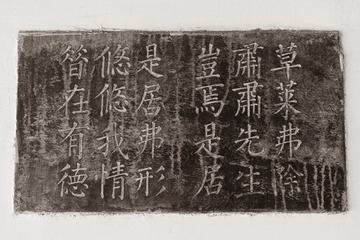 草萊弗除
肅肅先生
豈焉是居
是居弗形
悠悠我情
昝在有德